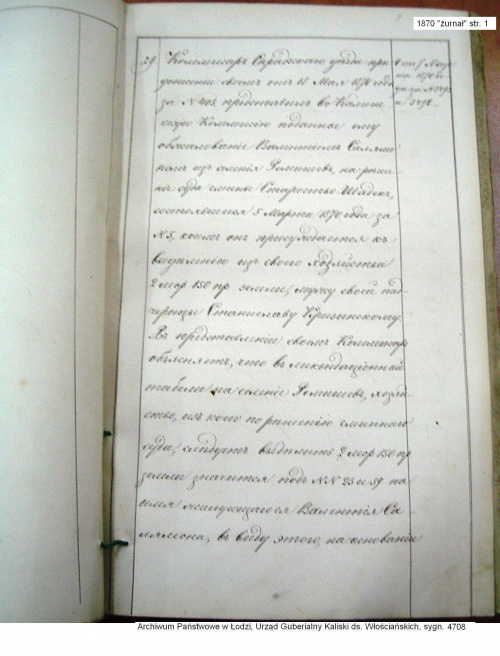 1870 "żurnał" str. 1
29
Коммисаръ Сѣрадзскаго уѣзда при
донесеніи своемъ отъ 11 Мая 1870 года
за № 403 представилъ въ Калиш
скую Коммисію поданное ему
обжалованіе Валентіемъ Саля
мономъ изъ имѣнія на рѣше
ніе суда гмины Старостве-Шадекъ,
состоявшееся 5 Марта 1870 года за
№ 5, коимъ онъ присуждается къ
выдѣленію изъ своего хозяйства
2 мор. 150 пр. земли, мужу своей пад
черицы Станиславу
Въ представленіи своемъ Коммисаръ
объясняетъ, что въ ликвидаціонной
табели на имѣніе хозяй
ство, изъ коего по рѣшенію гминнаго
суда, слѣдуетъ выдѣлить 2 мор. 150 пр.
земли значится подъ №№ 25 и 59 на
имя жалующагося Валентія Са
лямона, въ виду этого, на основаніи
Archiwum Państwowe w Łodzi, Urząd Guberialny Kaliski ds. Włościańskich, sygn. 4708